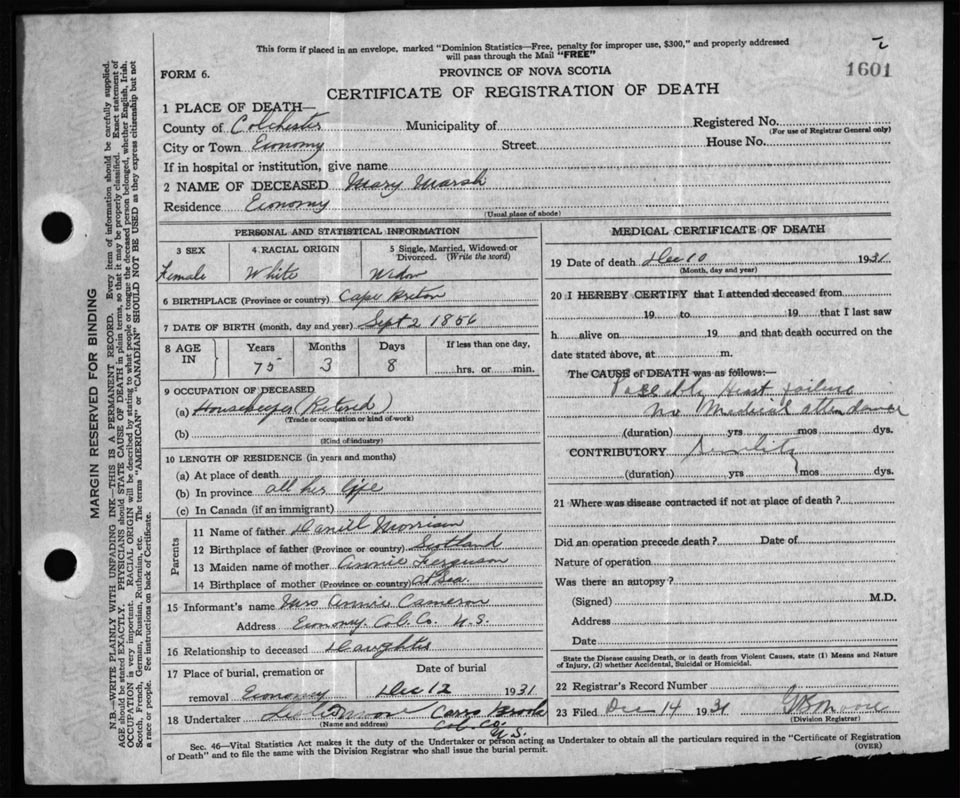 This form if placed in an envelope, marked "Dominion Statistics—Free, penalty for improper use, $300," and properly addressed
will pass through the Mail "FREE"
FORM 6.
PROVINCE OF NOVA SCOTIA
1601
CERTIFICATE OF REGISTRATION OF DEATH
1 PLACE OF DEATH—
County of Colchester Municipality of Registered No.
(For use of Registrar General only)
City or Town Economy Street House No.
If in hospital or institution, give name
2 NAME OF DECEASED Mary Marsh
Residence Economy
(Usual place of abode)
PERSONAL AND STATISTICAL INFORMATION
3 SEX 4 RACIAL ORIGIN 5 Single, Married, Widowed or
Divorced. (Write the word)
Female White Widow
6 BIRTHPLACE (Province or country) Cape Breton
7 DATE OF BIRTH (month, day and year) Sept 2 1856
8 AGE IN Years Months Days If less than one day,
75 3 8 hrs. or min.
9 OCCUPATION OF DECEASED
(a) Housekeeper (Retired)
(Trade or occupation or kind of work)
(b)
(Kind of industry)
10 LENGTH OF RESIDENCE (in years and months)
(a) At place of death
(b) In province all her life
(c) In Canada (if an immigrant)
Parents
11 Name of father Daniel Morrison
12 Birthplace of father (Province or country) Scotland
13 Maiden name of mother Annie Ferguson
14 Birthplace of mother (Province or country) At Sea
15 Informant's name Mrs Annie Cameron
Address Economy Col. Co. N.S.
16 Relationship to deceased Daughter
17 Place of burial, cremation or Date of burial
removal Economy Dec 12 1931
18 Undertaker
(Name and address)
Col. Co.
N.S.
MEDICAL CERTIFICATE OF DEATH
19 Date of death Dec 10 1931
(Month, day and year)
20 I HEREBY CERTIFY that I attended deceased from
19 to 19 that I last saw
h alive on 19 and that death occurred on the
date stated above, at m.
The CAUSE of DEATH was as follows:—
Possibly Heart failure
No Medical attendance
(duration) yrs mos dys.
CONTRIBUTORY Senility
(duration) yrs mos dys.
21 Where was disease contracted if not at place of death?
Did an operation precede death? Date of
Nature of operation
Was there an autopsy?
(Signed) M.D.
Address
Date
State the Disease causing Death, or in death from Violent Causes, state (1) Means and Nature
of Injury, (2) whether Accidental, Suicidal or Homicidal.
22 Registrar's Record Number
23 Filed Dec 14 1931
(Division Registrar)
Sec. 46—Vital Statistics Act makes it the duty of the Undertaker or person acting as Undertaker to obtain all the particulars required in the "Certificate of Registration
of Death" and to file the same with the Division Registrar who shall issue the burial permit.
(OVER)
MARGIN RESERVED FOR BINDING
N.B.—WRITE PLAINLY WITH UNFADING INK—THIS IS A PERMANENT RECORD. Every item of information should be carefully supplied.
AGE should be stated EXACTLY. PHYSICIANS should STATE CAUSE OF DEATH in plain terms, so that it may be properly classified. Exact statement of
OCCUPATION is very important. RACIAL ORIGIN will be described by stating to what people or tongue the deceased person belonged, whether English, Irish,
Scotch, French, German, Russian, Ruthenian, etc. The terms "AMERICAN" or "CANADIAN" SHOULD NOT BE USED as they express citizenship but not
a race or people. See instructions on back of Certificate.